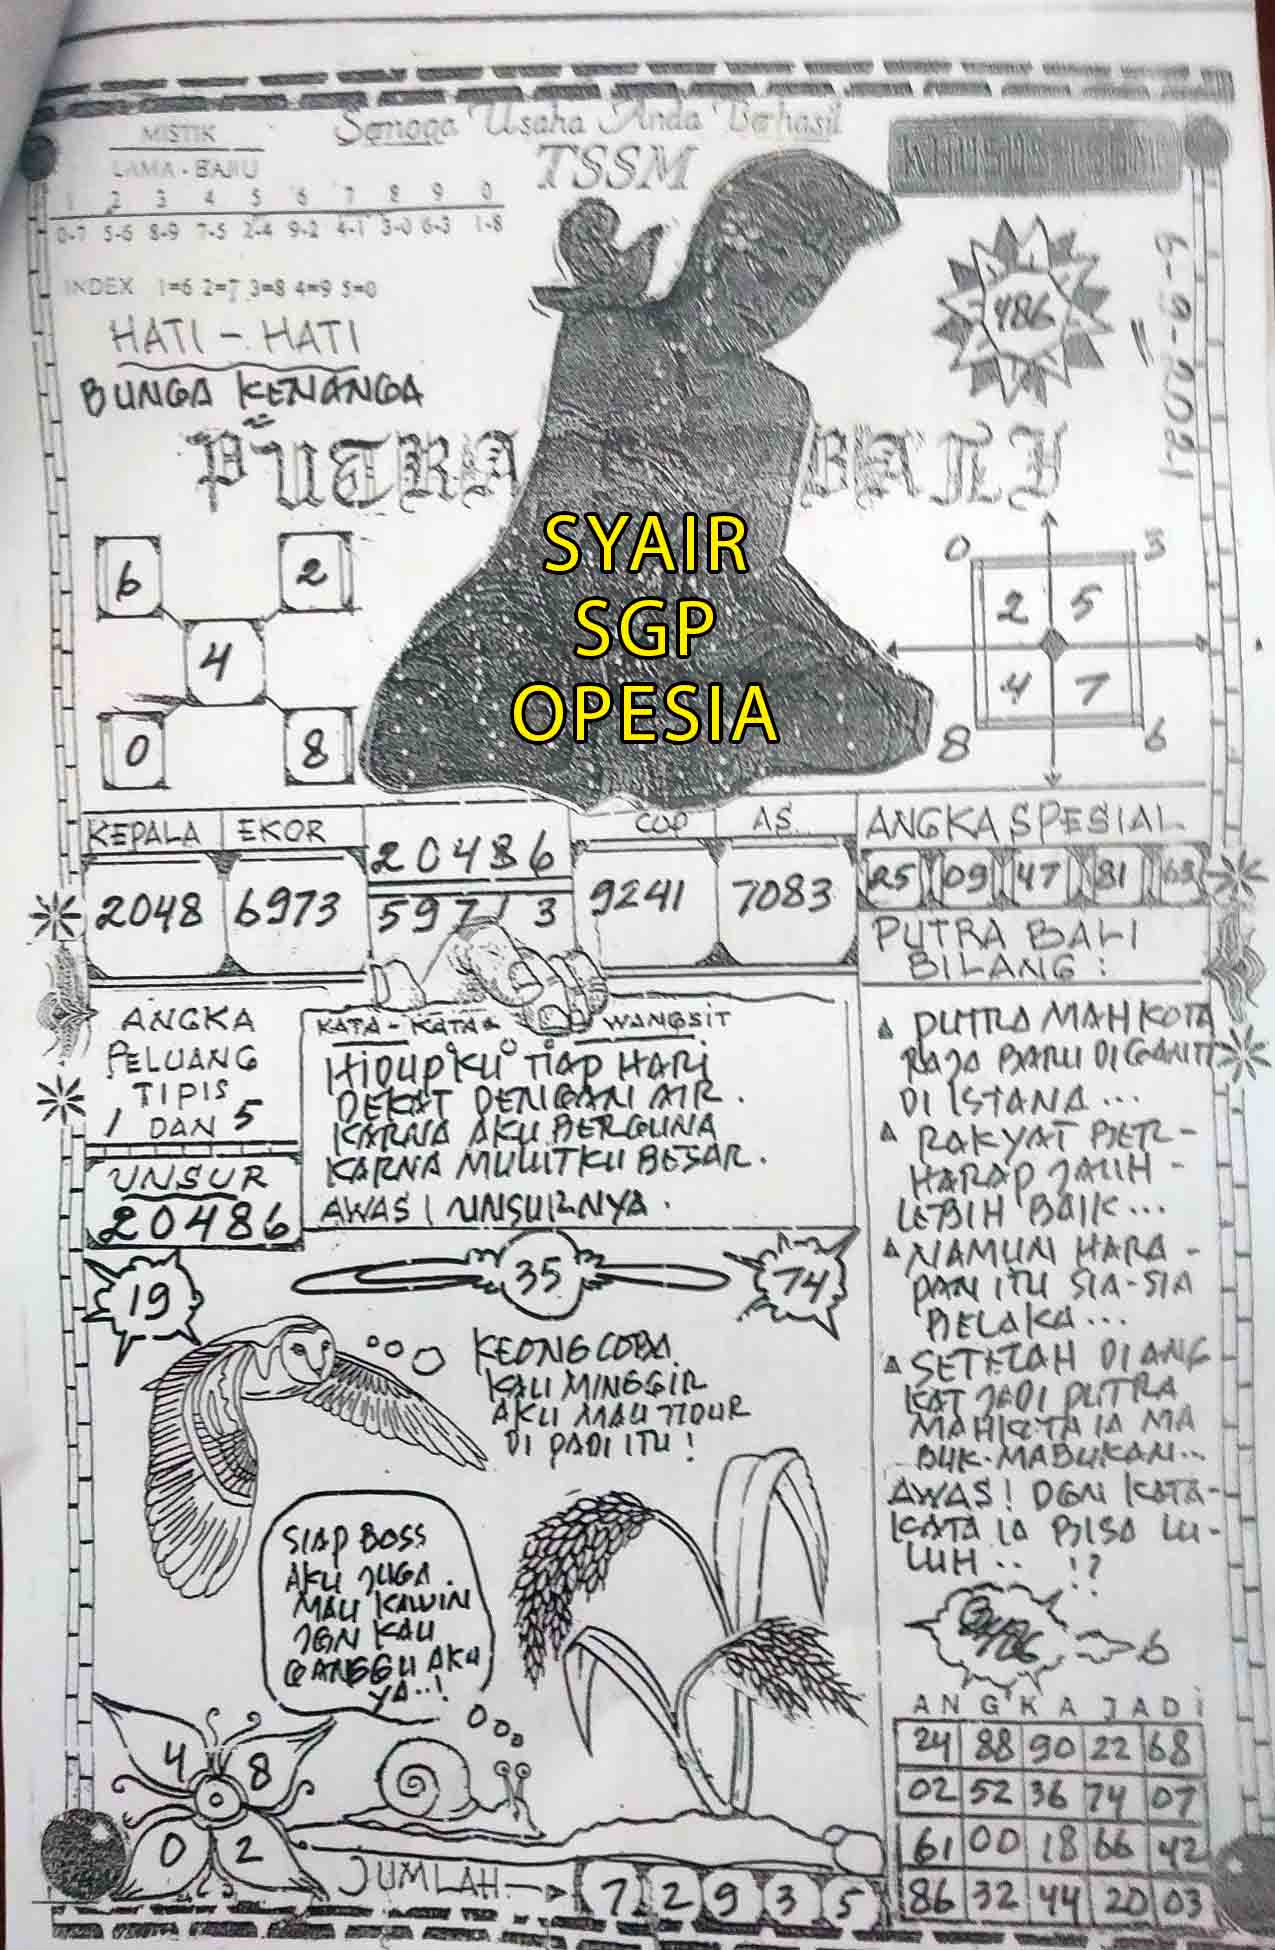 Semoga Usaha Anda Berhasil
TSSM
MISTIK
LAMA - BARU
1 2 3 4 5 6 7 8 9 0
0-7 5-6 8-9 7-5 2-4 9-2 4-1 3-0 6-3 1-8
INDEX 1=6 2=7 3=8 4=9 5=0
HATI - HATI
BUNGA KENANGA
486
6-9-2021
PUTRA BALI
SYAIR
SGP
OPESIA
6 2
4
0 8
0 3
2 5
4 7
8 6
KEPALA EKOR
2048 6973
20486
597 1 3
COP AS
9241 7083
ANGKA SPESIAL
25 09 47 81 63
PUTRA BALI
BILANG :
ANGKA
PELUANG
TIPIS
1 DAN 5
UNSUR
20486
KATA - KATA WANGSIT
HIDUPKU TIAP HARI
DEKAT DENGAN AIR.
KARNA AKU BERGUNA
KARNA MULUTKU BESAR.
AWAS! UNSURNYA.
PUTRA MAHKOTA
RAJA BARU DIGANTI
DI ISTANA...
RAKYAT BER-
HARAP JAUH-
LEBIH BAIK...
NAMUN HARA-
PAN ITU SIA-SIA
BELAKA...
SETELAH DIANG
KAT JADI PUTRA
MAHKOTA IA MA
BUK-MABUKAN...
AWAS! DGN KATA-
KATA IA BISA LU-
LUH.. !?
19
35
74
KEONG COBA
KAU MINGGIR
AKU MAU TIDUR
DI PADI ITU!
SIAP BOSS
AKU JUGA.
MAU KAWIN
JGN KAU
GANGGU AKU
YA..!
6
4 8
0 2
JUMLAH
7 2 9 3 5
ANGKA JADI
24 88 90 22 68
02 52 36 74 07
61 00 18 66 42
86 32 44 20 03